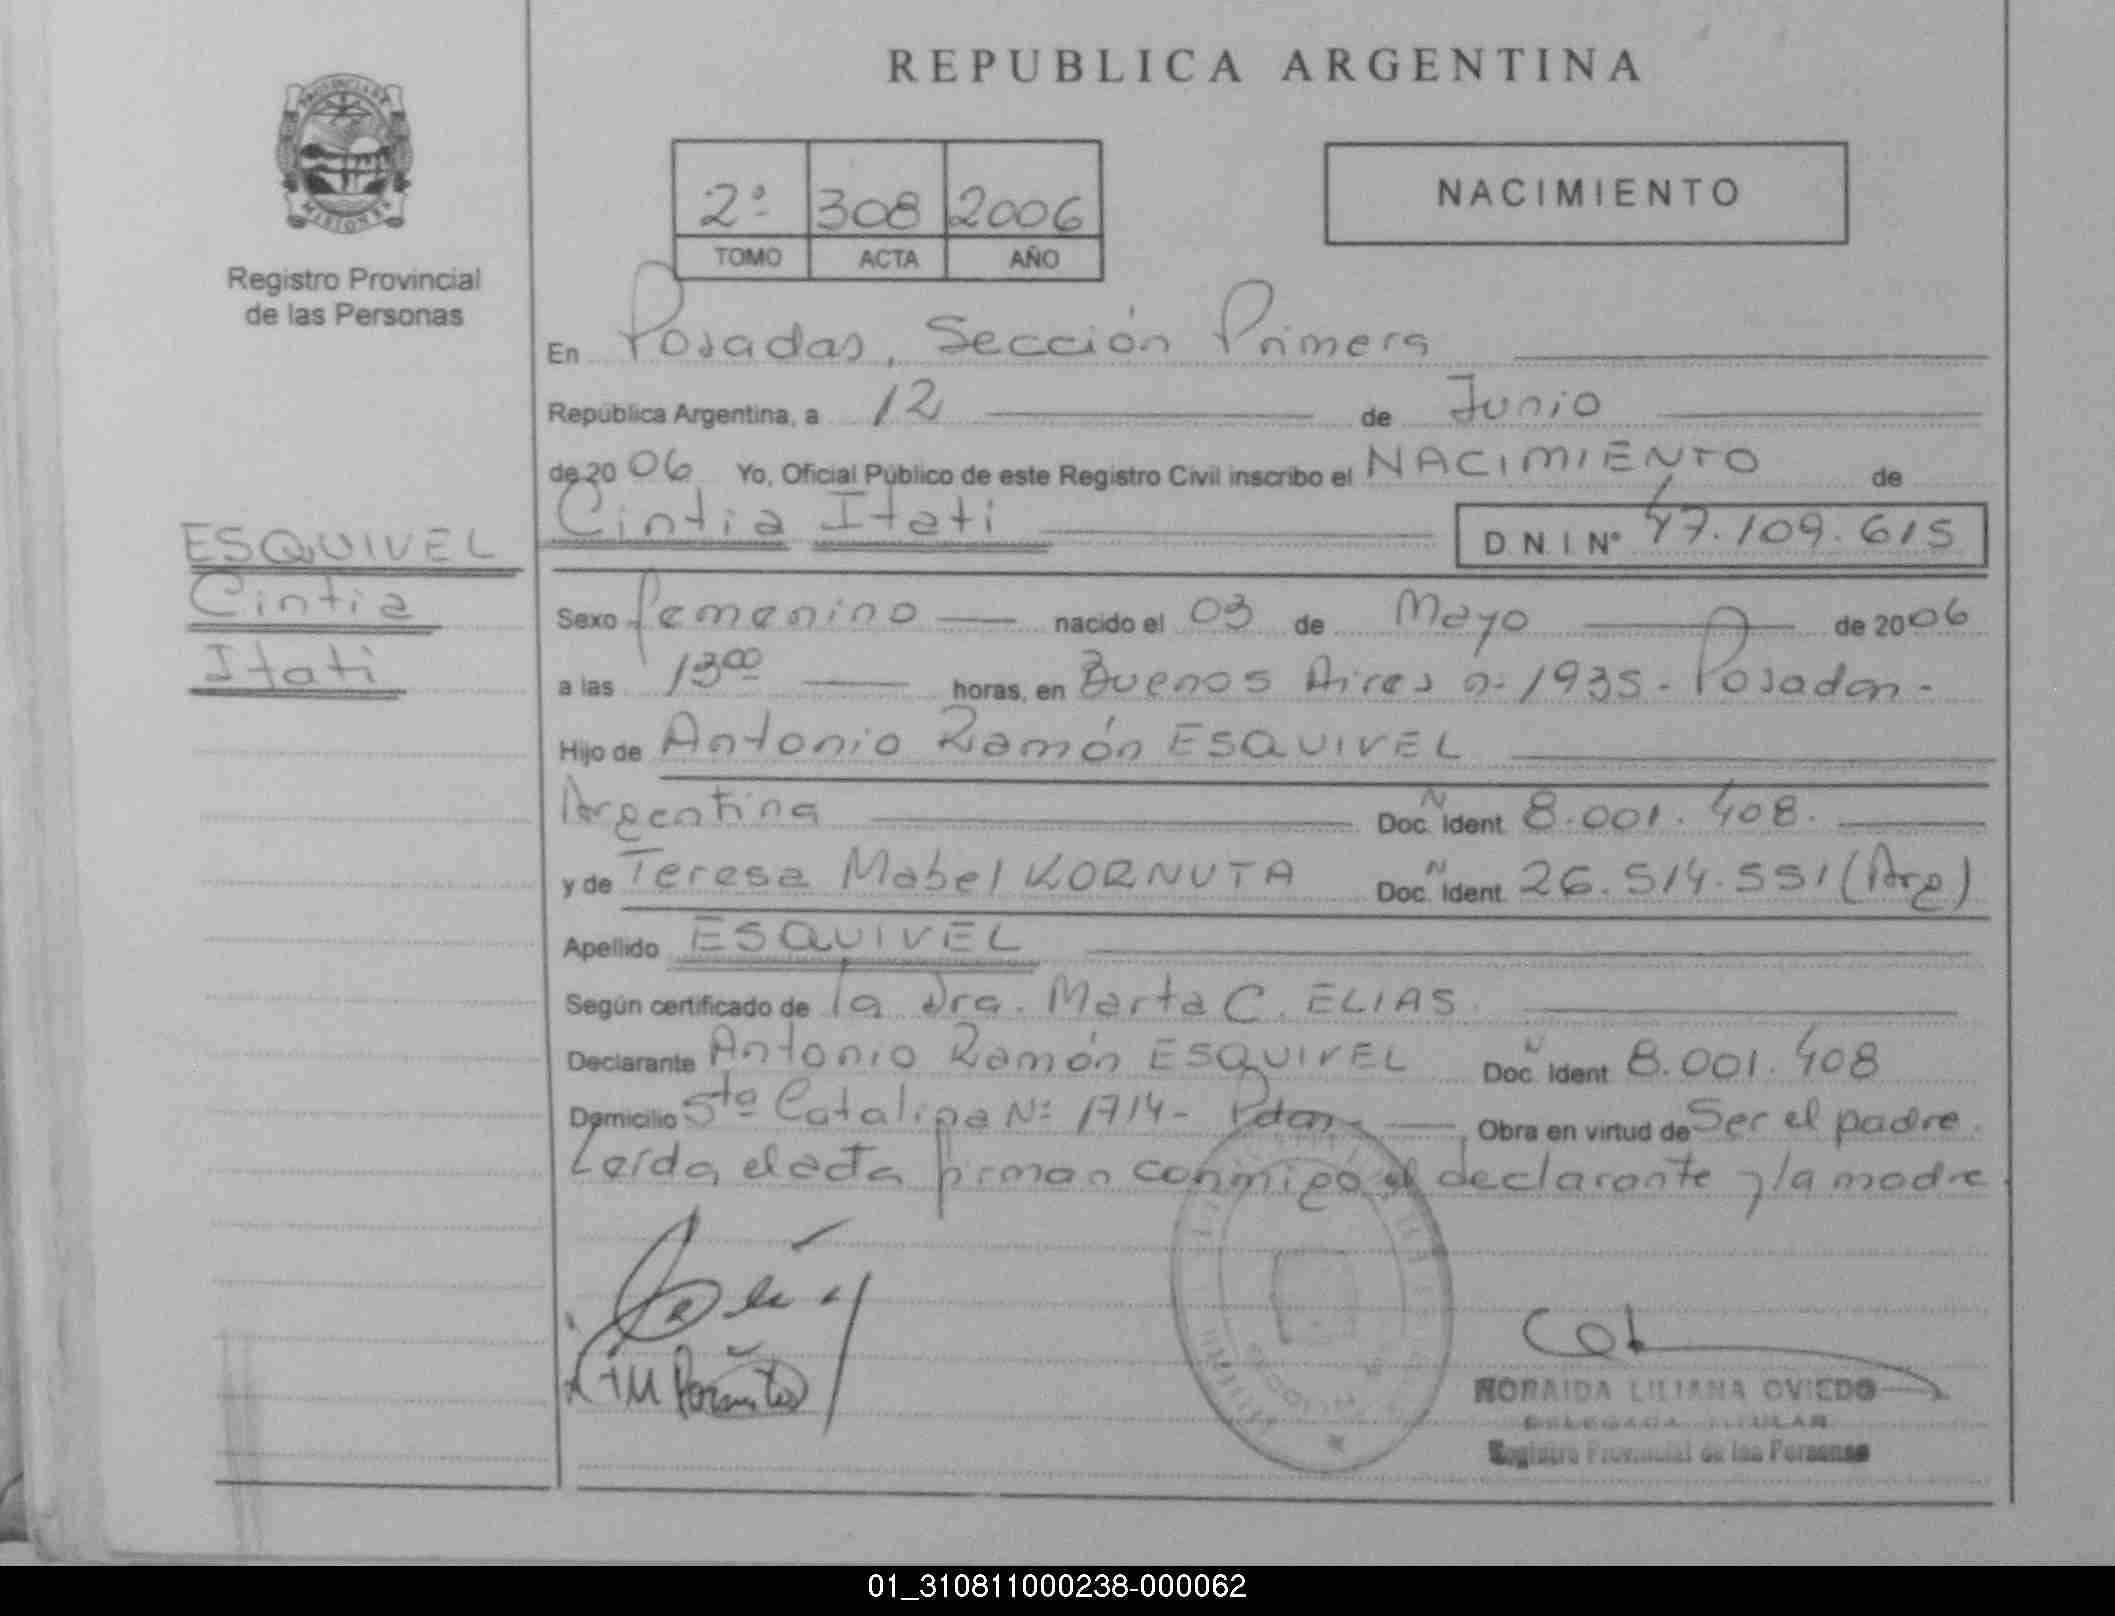 REPUBLICA ARGENTINA
MISIONES
Registro Provincial
de las Personas
2º 308 2006
TOMO ACTA AÑO
NACIMIENTO
En Posadas, Sección Primera
República Argentina, a 12 de Junio
de 2006 Yo, Oficial Público de este Registro Civil inscribo el NACIMIENTO de
Cintia Itati D N I Nº 47.109.615
ESQUIVEL
Cintia
Itati
Sexo Femenino nacido el 03 de Mayo de 2006
a las 13 00 horas, en Buenos Aires nº 1935 - Posadas -
Hijo de Antonio Ramón ESQUIVEL
Argentina Doc. Ident. N 8.001.408.
y de Teresa Mabel KORNUTA Doc. Ident. N 26.514.551 (Arg)
Apellido ESQUIVEL
Según certificado de la Dra. Marta C. ELIAS.
Declarante Antonio Ramón ESQUIVEL Doc. Ident. N 8.001.408
Domicilio Sta Catalina Nº 1714 - Pdas. Obra en virtud de Ser el padre.
Leída el acta firman conmigo el declarante y la madre.
NORAIDA LILIANA OVIEDO
DELEGADA TITULAR
Registro Provincial de las Personas
01_310811000238-000062